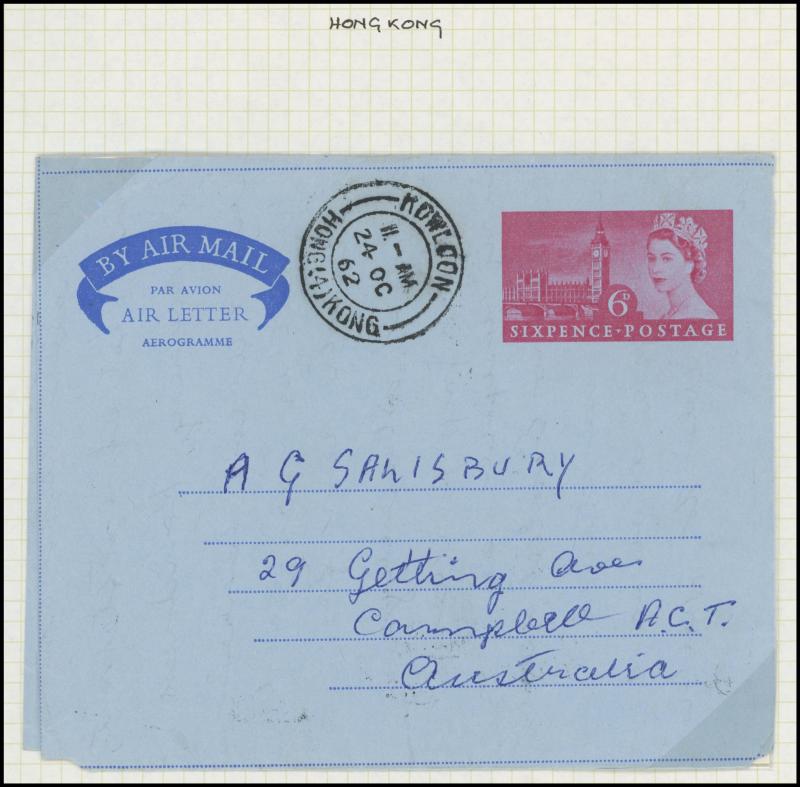 HONG KONG
BY AIR MAIL
PAR AVION
AIR LETTER
AEROGRAMME
KOWLOON
11 - AM
24 OC
62
HONG (4) KONG
6D
SIXPENCE · POSTAGE
A G SALISBURY
29 Getting Aves
Campbell A.C.T.
Australia